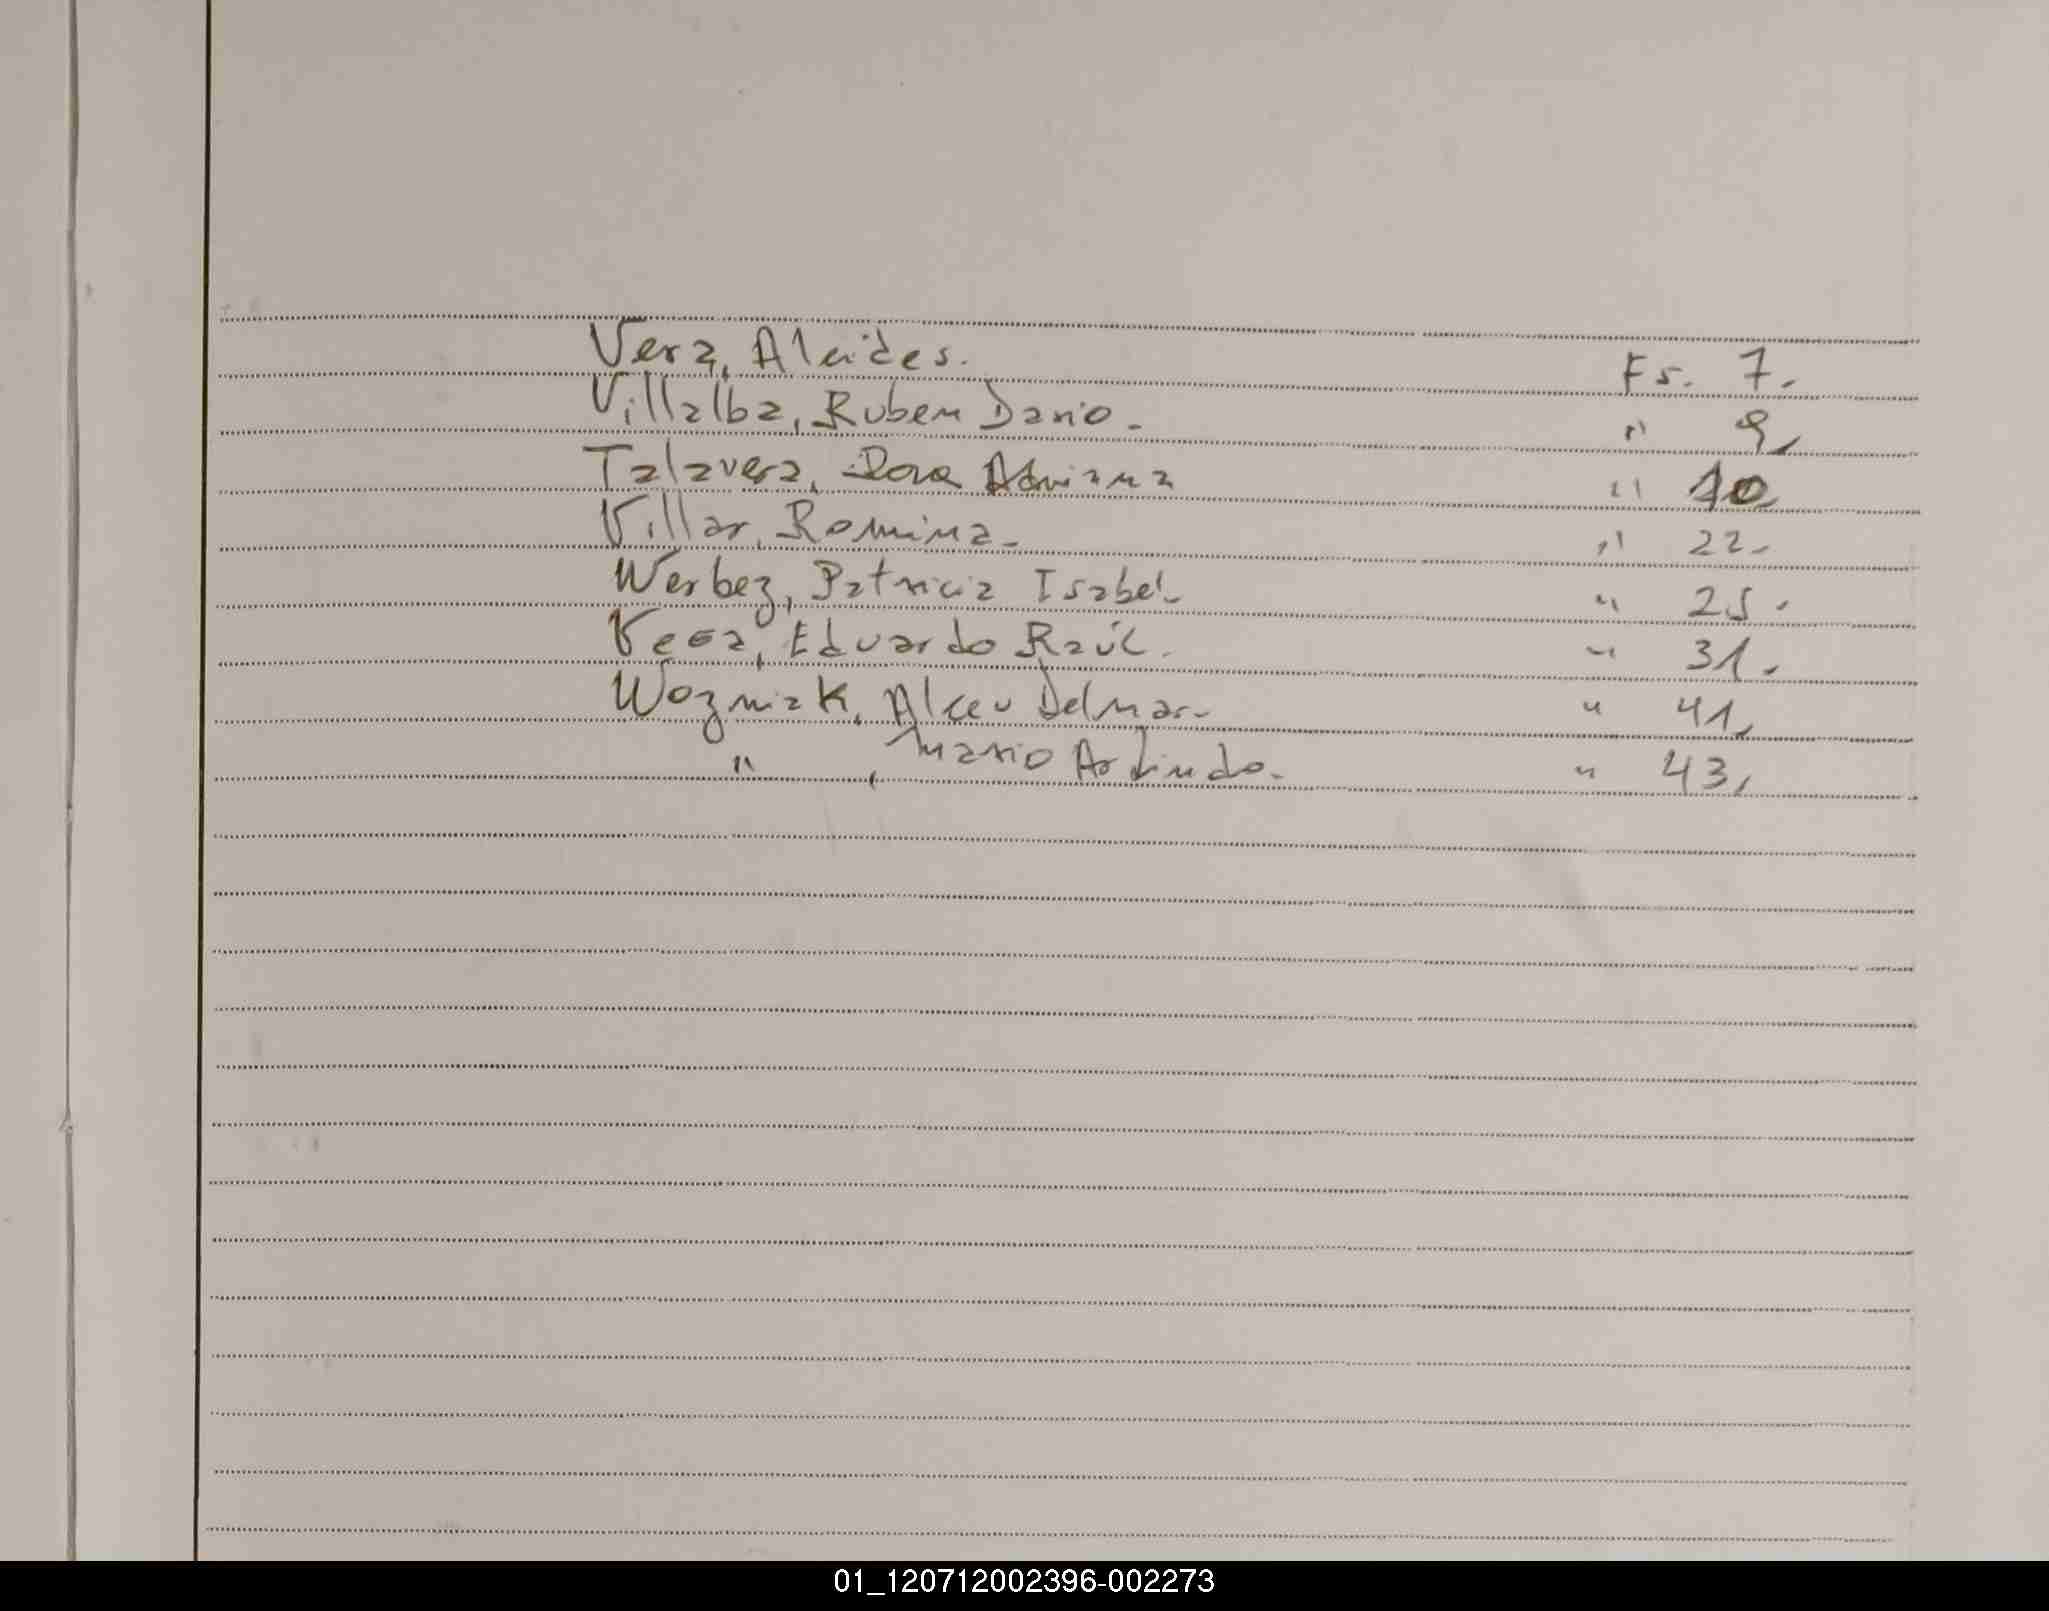 Vera, Alcides. Fs. 7.
Villalba, Ruben Dario. " 9.
Talavera, Dora Adriana " 10
Villar, Romina. " 22.
Werbez, Patricia Isabel. " 25.
Vega, Eduardo Raúl. " 31.
Wozniak, Alceu Delmar. " 41.
" , Mario Arlindo. " 43.
01_120712002396-002273